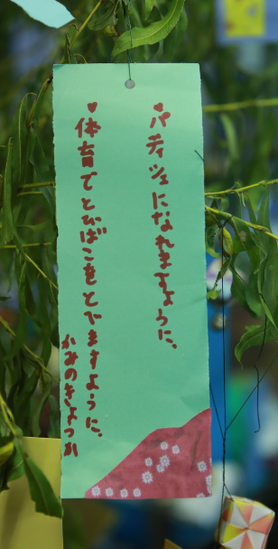 ♥パティシェになれますように、
♥体育でとびばこをとべますように、
かみのきよつか